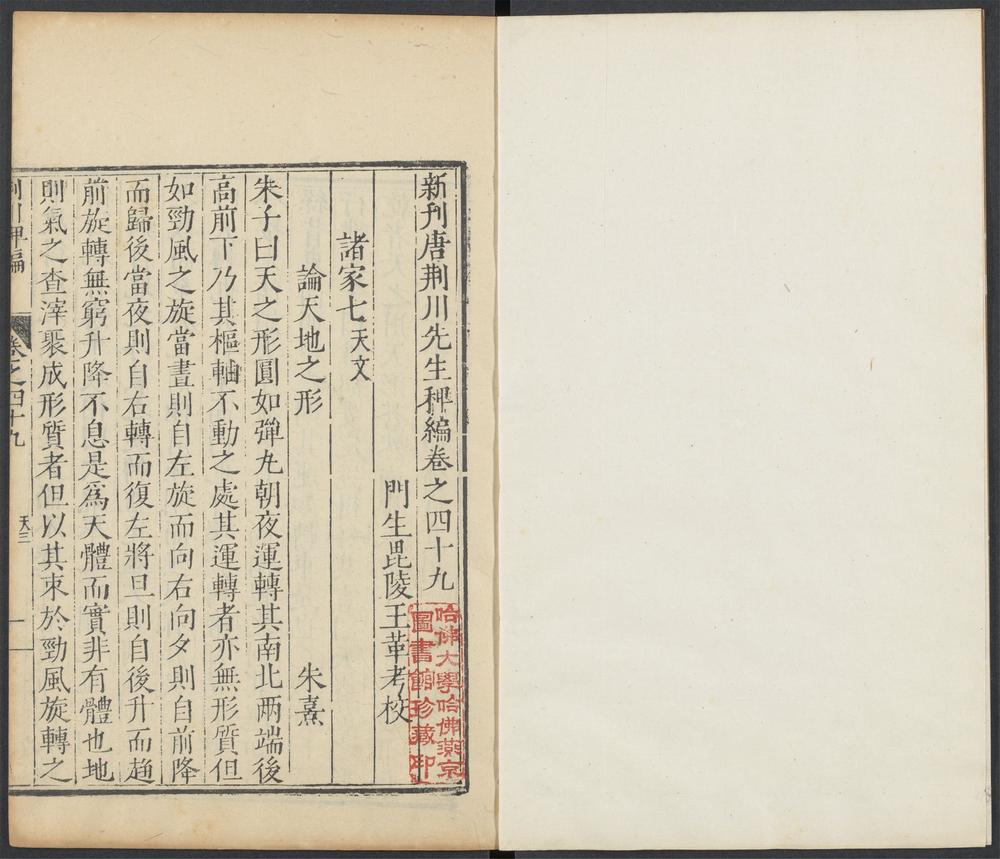 新刊唐荊川先生稗編卷之四十九
門生毘陵王革考校
諸家七天文
論天地之形 朱熹
朱子曰天之形圓如彈丸朝夜運轉其南北兩端後
高前下乃其樞軸不動之處其運轉者亦無形質但
如勁風之旋當晝則自左旋而向右向夕則自前降
而歸後當夜則自右轉而復左將旦則自後升而趋
前旋轉無窮升降不息是爲天體而實非有體也地
則氣之查滓聚成形質者但以其束於勁風旋轉之
荊川稗編 卷之四十九 天三 一
哈佛大學哈佛燕京
圖書館珍藏印